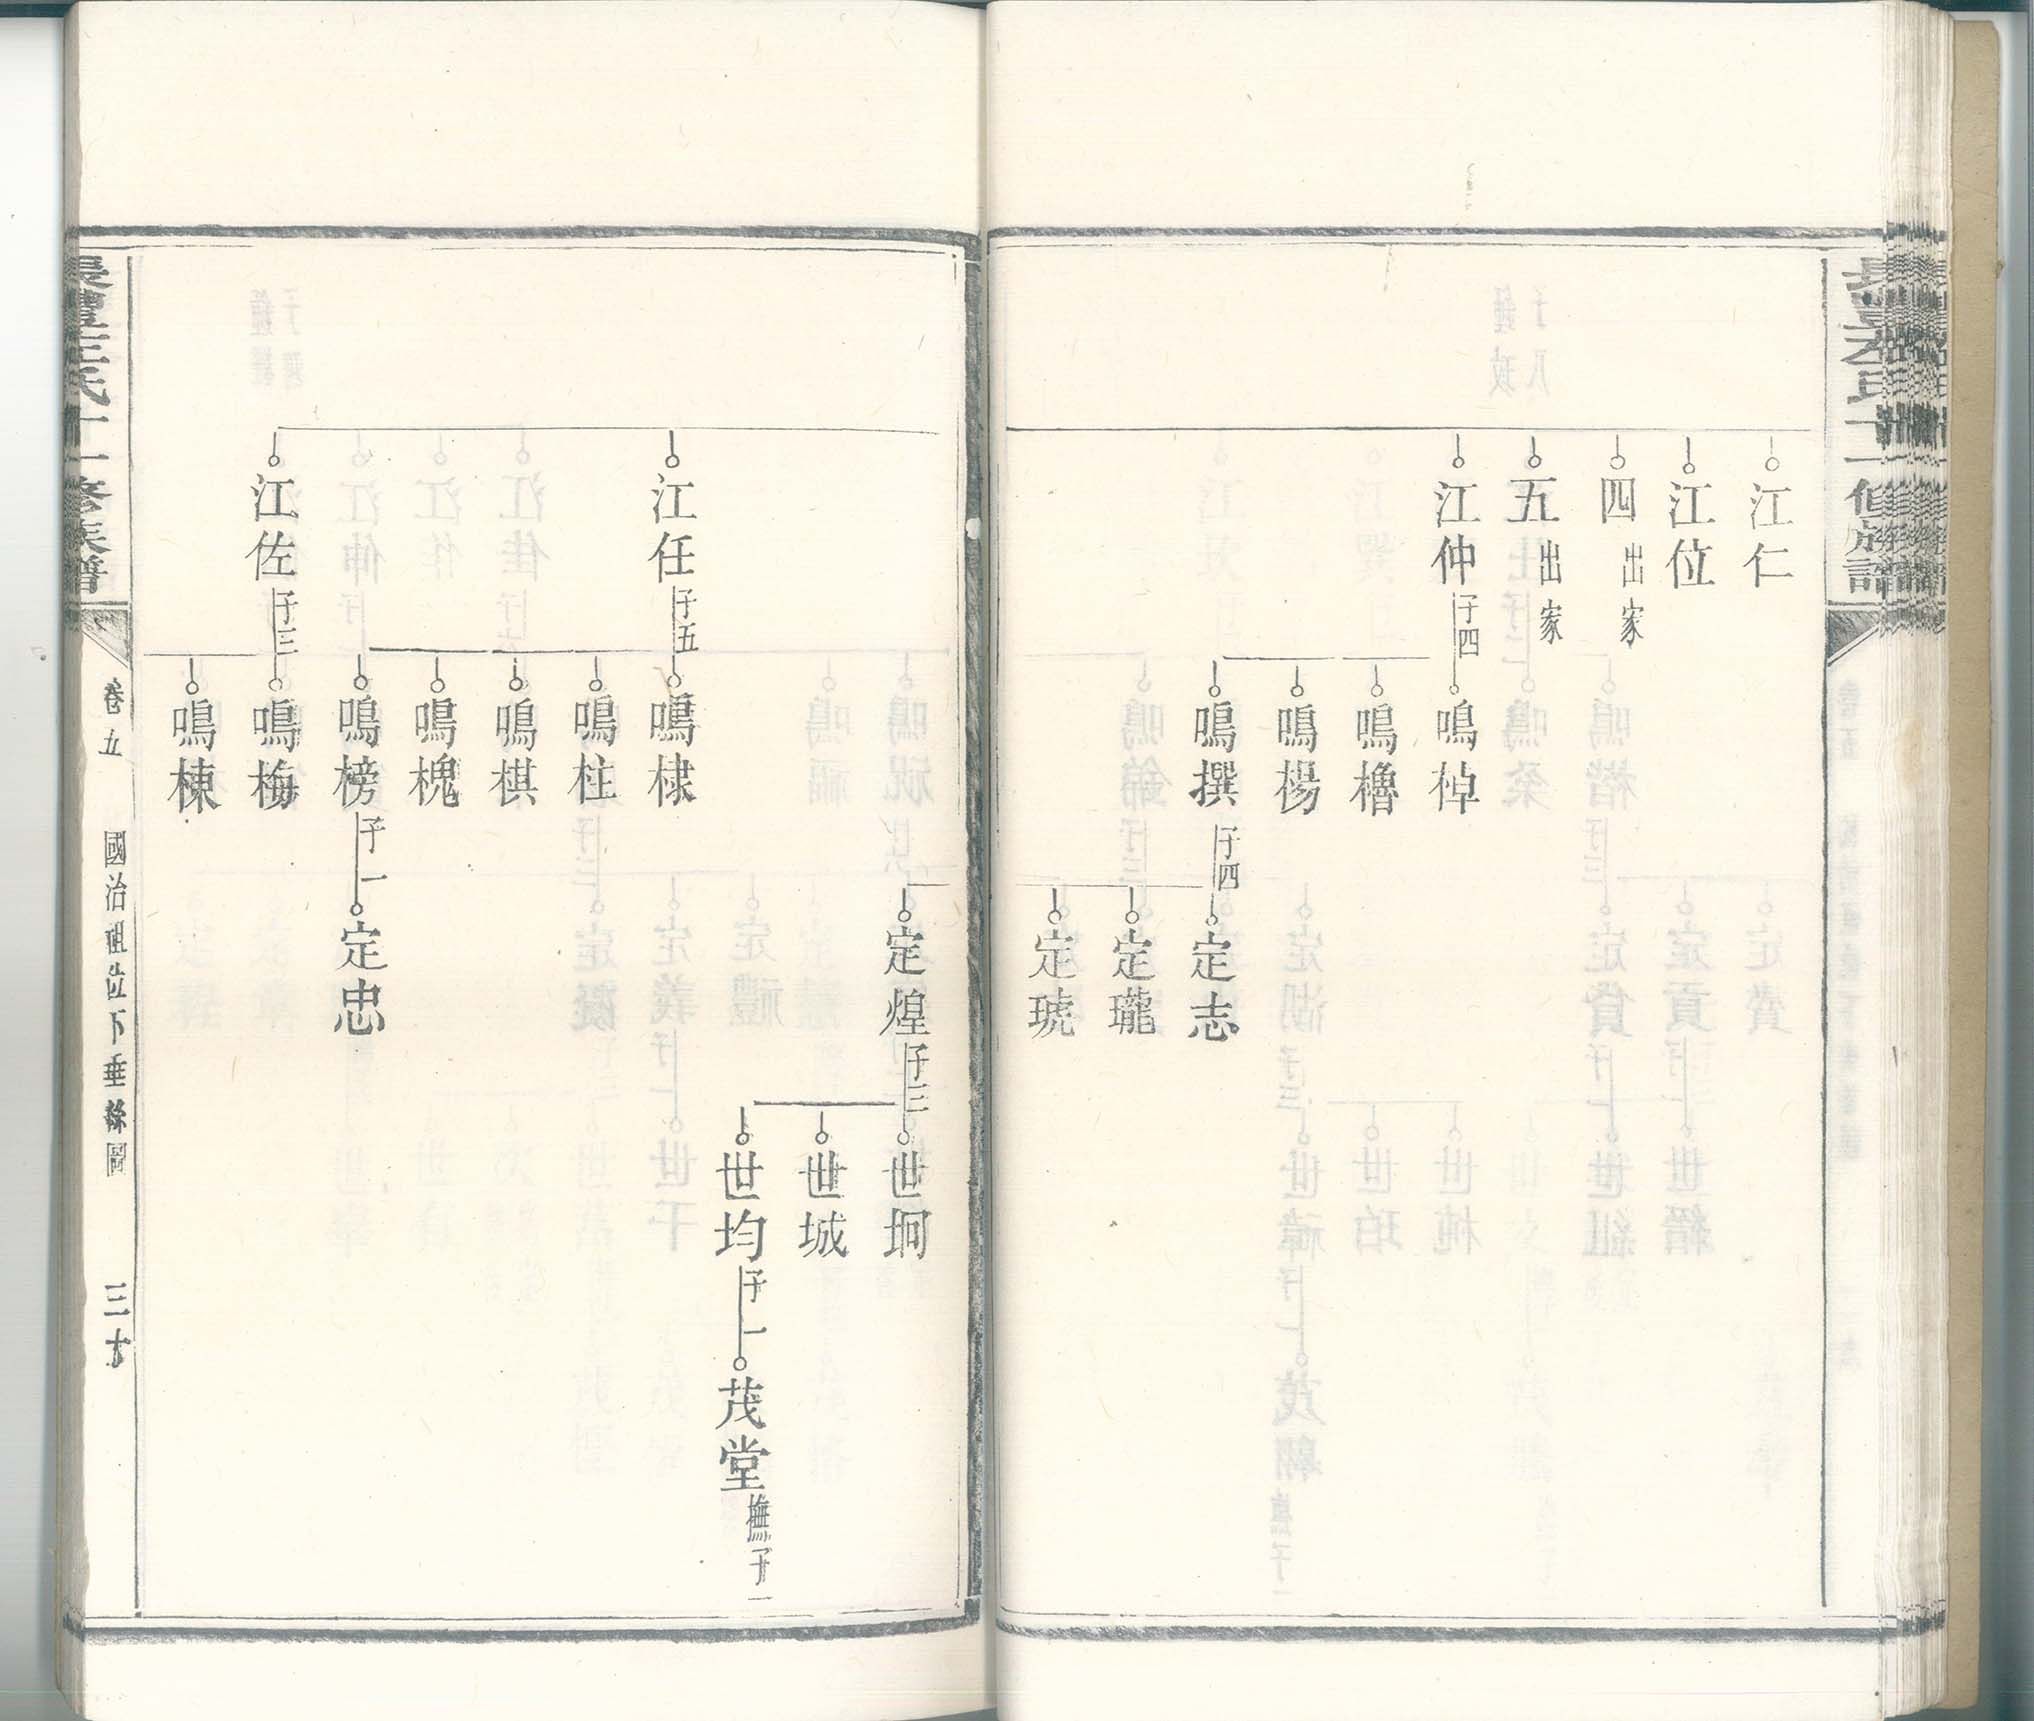 江仁
江位
四 出家
五 出家
江仲 子四
鳴棹
鳴櫓
鳴楊
鳴撰 子四
定志
定瓏
定琥
定煌 子三
世珂
世城
世均 子一
茂堂 撫子一
江任 子五
鳴棣
鳴柱
鳴棋
鳴槐
鳴榜 子一
定忠
江佐 子三
鳴梅
鳴棟
氏十一修族譜
卷五
國治祖位下垂絲圖
三十